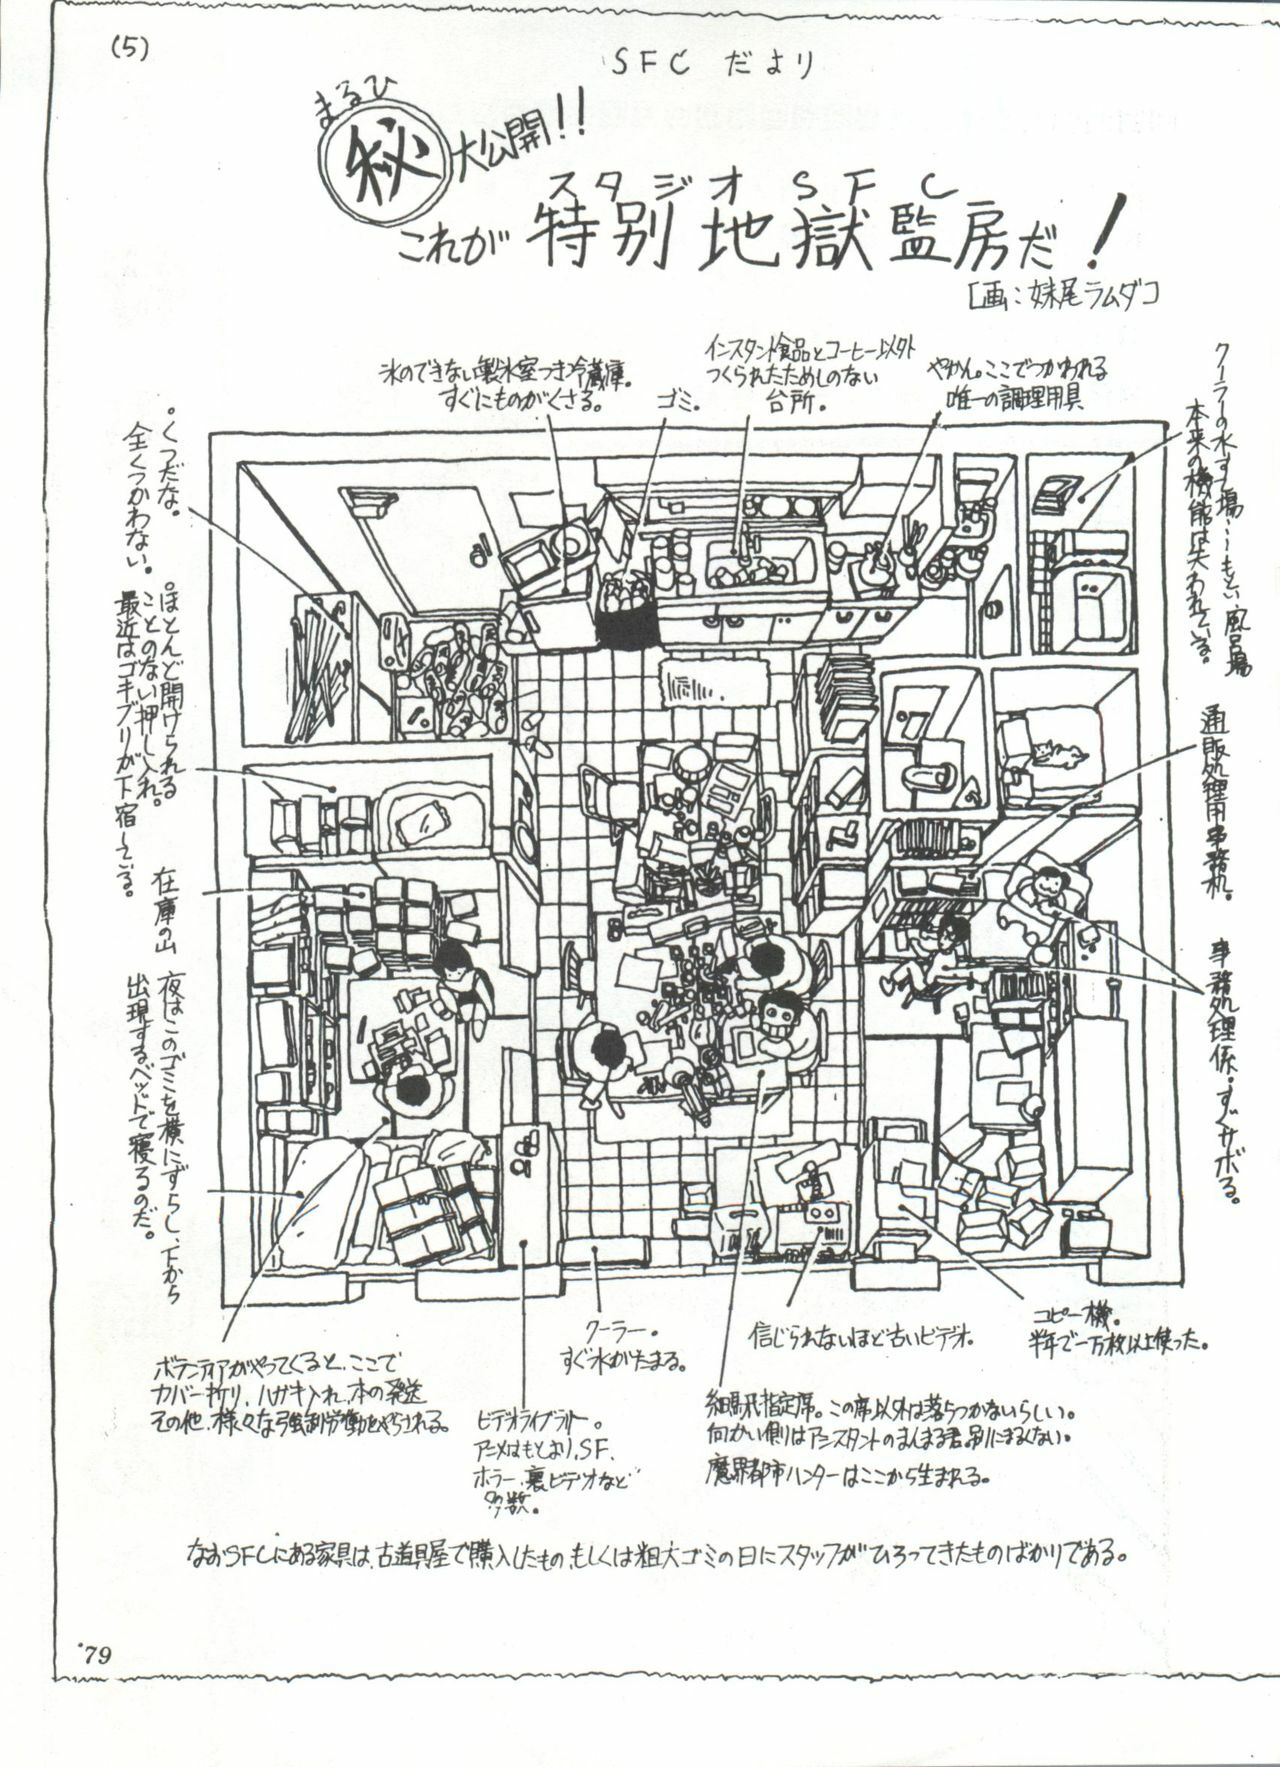 (5)
SFC だより
まるひ
秘 大公開!!
スタジオ SFC
これが 特別地獄監房だ!
[画:妹尾ラムダコ
氷のできない製氷室つき冷蔵庫。
すぐにものがくさる。
ゴミ。
インスタント食品とコーヒー以外
つくられたためしのない
台所。
やかん。ここでつかわれる
唯一の調理用具
クーラーの水すて場……もとい風呂場
本来の機能は失われている。
通販処理用事務机。
事務処理係。すぐサボる。
。くつだな。
全くつかわない。
。ほとんど開けられる
ことのない押し入れ。
最近はゴキブリが下宿している。
在庫の山
夜はこのゴミを横にずらし、下から
出現するベッドで寝るのだ。
ボランティアがやってくると、ここで
カバー折り、ハガキ入れ、本の発送
その他、様々な強制労働をやらされる。
ビデオライブラリー。
アニメはもとより、SF、
ホラー、裏ビデオなど
多数。
クーラー。
すぐ水がたまる。
信じられないほど古いビデオ。
コピー機。
半年で一万枚以上使った。
細馬飛指定席。この席以外は落ちつかないらしい。
向かい側はアシスタントのまんまる君。別にまるくない。
魔界都市ハンターはここから生まれる。
なおSFCにある家具は、古道具屋で購入したもの、もしくは粗大ゴミの日にスタッフがひろってきたものばかりである。
'79